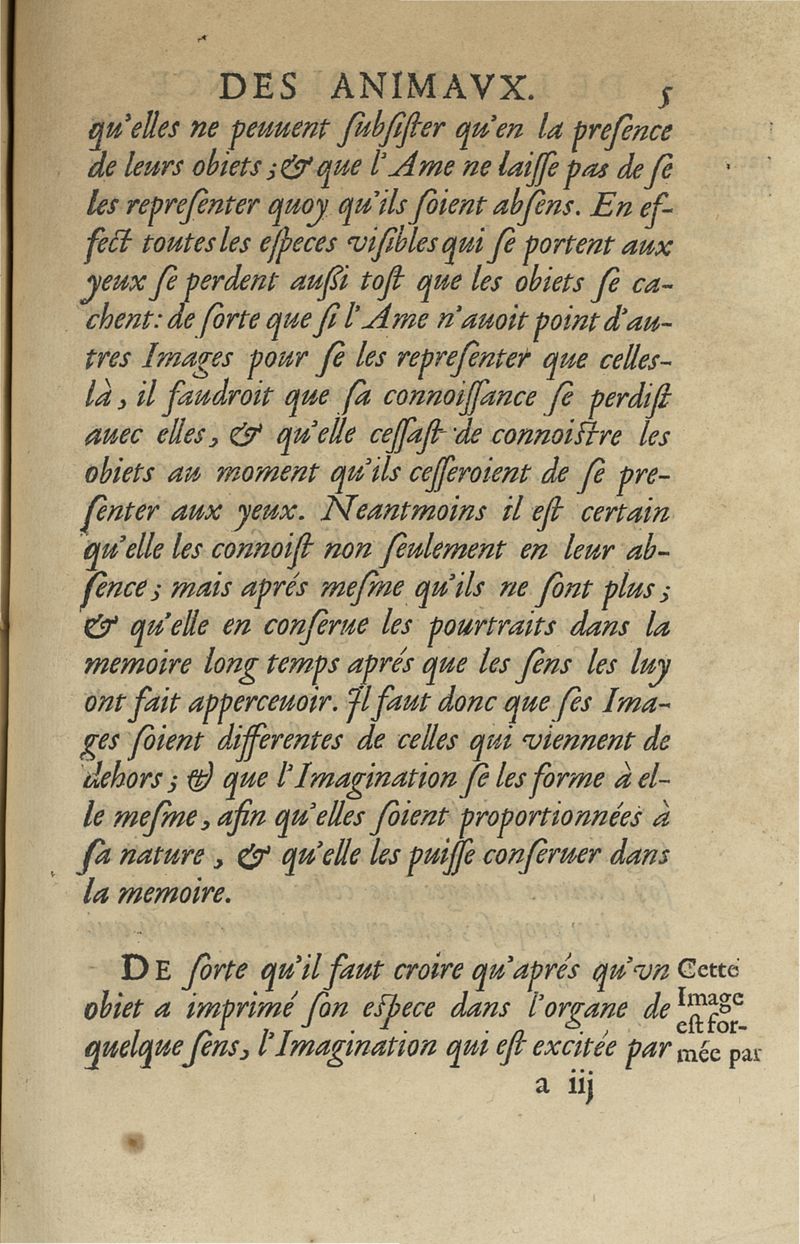 DES ANIMAVX. 5
qu'elles ne peuuent ſubſiſter qu'en la preſence
de leurs obiets ; & que l'Ame ne laiſſe pas de ſe
les repreſenter quoy qu'ils ſoient abſens. En ef-
fect toutes les eſpeces viſibles qui ſe portent aux
yeux ſe perdent auſſi toſt que les obiets ſe ca-
chent: de ſorte que ſi l'Ame n'auoit point d'au-
tres Images pour ſe les repreſenter que celles-
là, il faudroit que ſa connoiſſance ſe perdiſt
auec elles, & qu'elle ceſſaſt de connoiſtre les
obiets au moment qu'ils ceſſeroient de ſe pre-
ſenter aux yeux. Neantmoins il eſt certain
qu'elle les connoiſt non ſeulement en leur ab-
ſence ; mais aprés meſme qu'ils ne ſont plus ;
& qu'elle en conſerue les pourtraits dans la
memoire long temps aprés que les ſens les luy
ont fait apperceuoir. Il faut donc que ſes Ima-
ges ſoient differentes de celles qui viennent de
dehors ; & que l'Imagination ſe les forme à el-
le meſme, afin qu'elles ſoient proportionnées à
ſa nature, & qu'elle les puiſſe conſeruer dans
la memoire.
DE ſorte qu'il faut croire qu'aprés qu'vn
obiet a imprimé ſon eſpece dans l'organe de
quelque ſens, l'Imagination qui eſt excitée par
Cette
Image
eſt for-
mée par
a iij